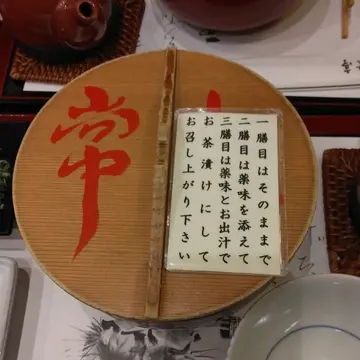 一膳目はそのままで
二膳目は薬味を添えて
三膳目は薬味とお出汁で
お茶漬けにして
お召し上がり下さい
常